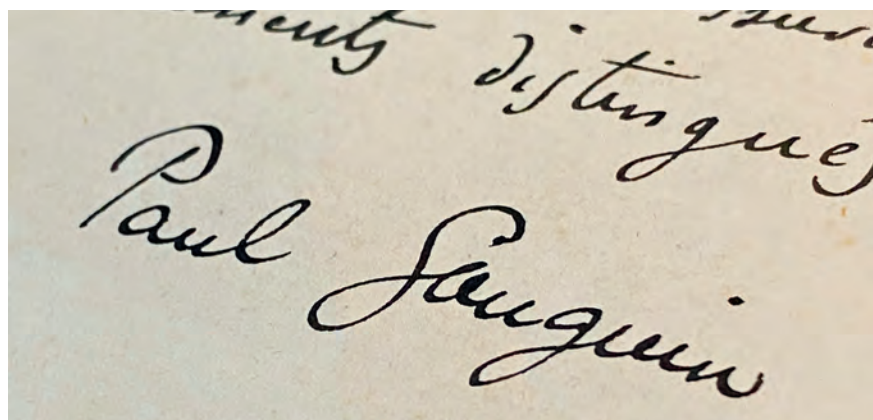 distingués
Paul Gauguin